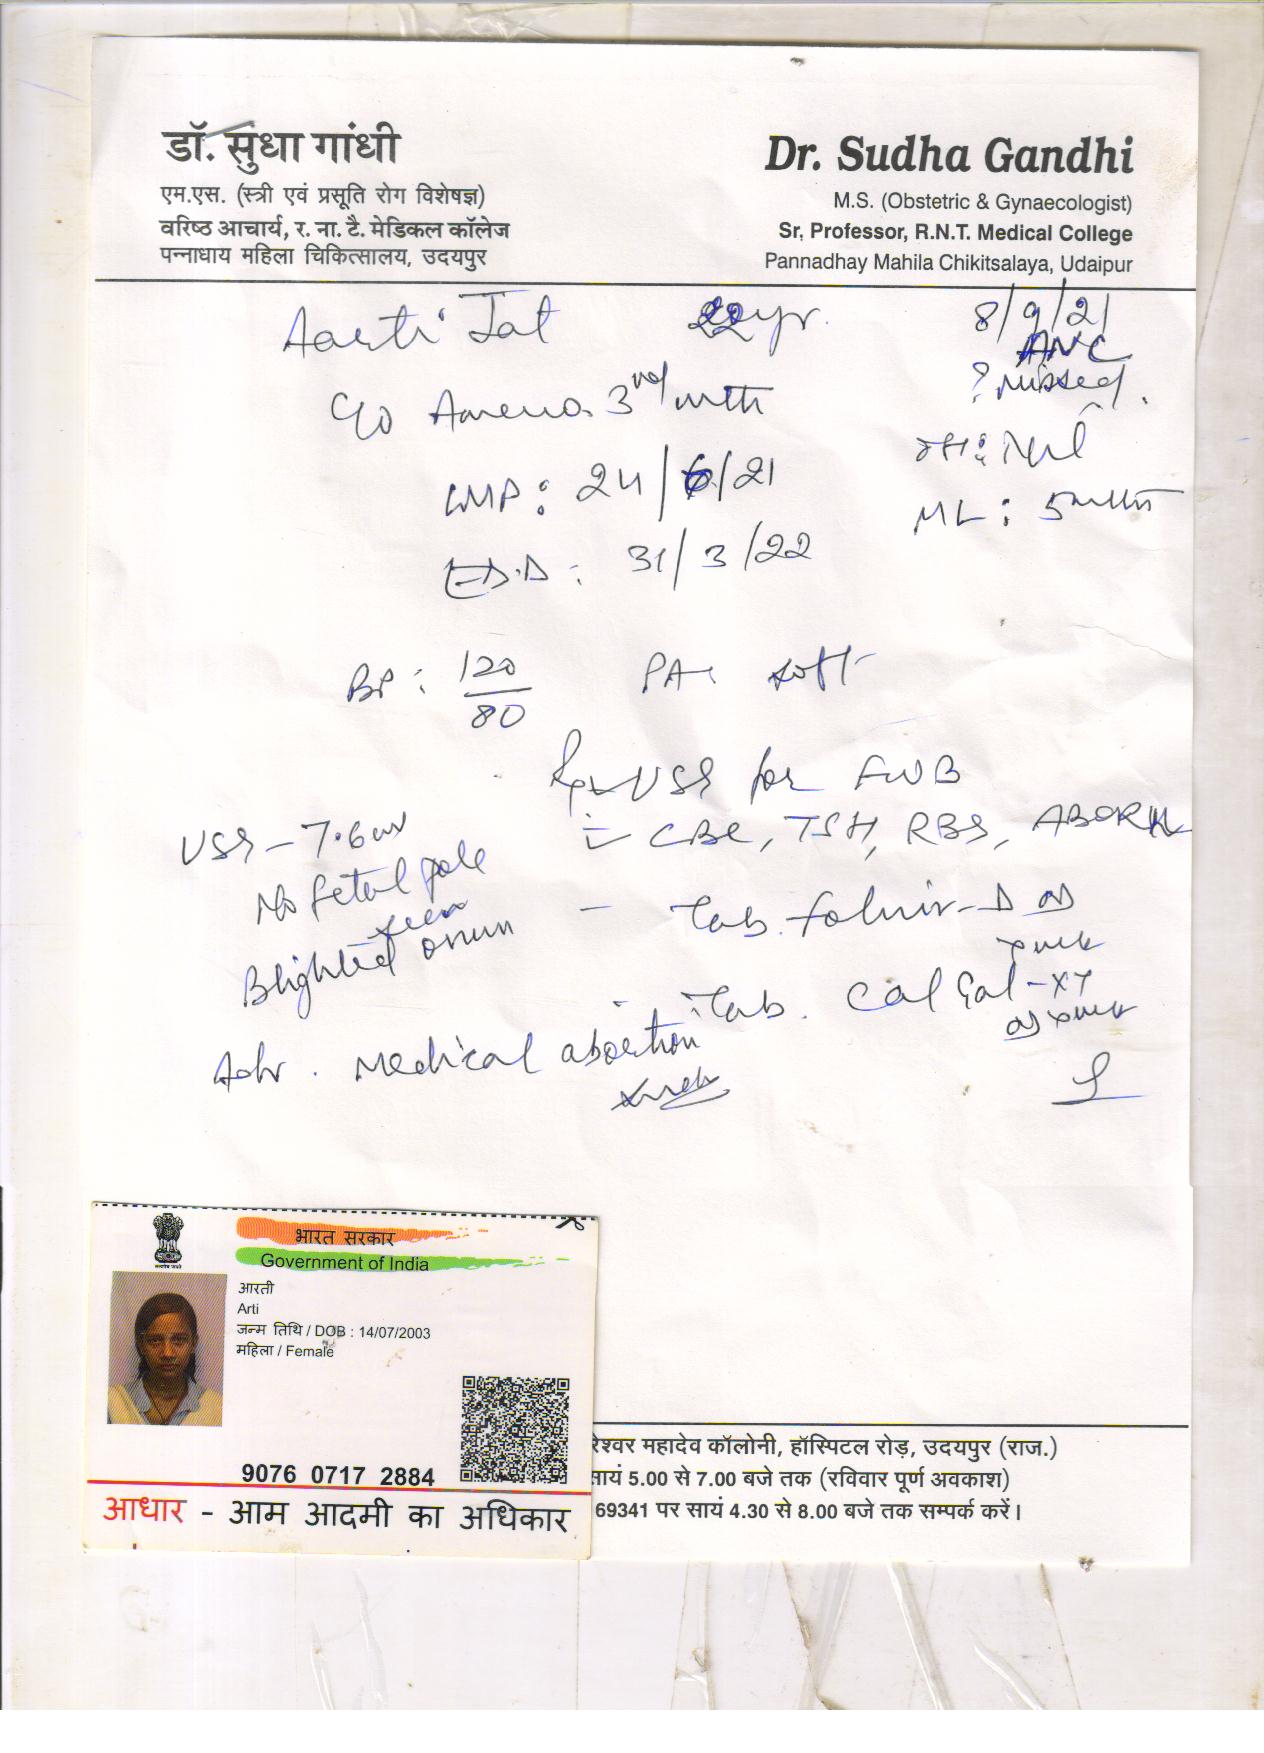 डॉ. सुधा गांधी
एम.एस. (स्त्री एवं प्रसूति रोग विशेषज्ञ)
वरिष्ठ आचार्य, र. ना. टै. मेडिकल कॉलेज
पन्नाधाय महिला चिकित्सालय, उदयपुर
Dr. Sudha Gandhi
M.S. (Obstetric & Gynaecologist)
Sr, Professor, R.N.T. Medical College
Pannadhay Mahila Chikitsalaya, Udaipur
Aarti Jat 22yr. 8/9/21
ANC
? Missed.
C/O Ameno. 3rd mth
MH: Nil
LMP: 24/6/21
ML: 5 mths
E.D.D: 31/3/22
BP: 120/80 PA soft
USG for FWB
CBC, TSH, RBS, ABORH
USG - 7.6 wk
No fetal pole
seen
Blighted ovum
- Tab. -D OD
- Tab. Cal Gal-XT
OD
Adv. Medical abortion
भारत सरकार
Government of India
आरती
Arti
जन्म तिथि / DOB : 14/07/2003
महिला / Female
9076 0717 2884
आधार - आम आदमी का अधिकार
रेश्वर महादेव कॉलोनी, हॉस्पिटल रोड़, उदयपुर (राज.)
सायं 5.00 से 7.00 बजे तक (रविवार पूर्ण अवकाश)
69341 पर सायं 4.30 से 8.00 बजे तक सम्पर्क करें।